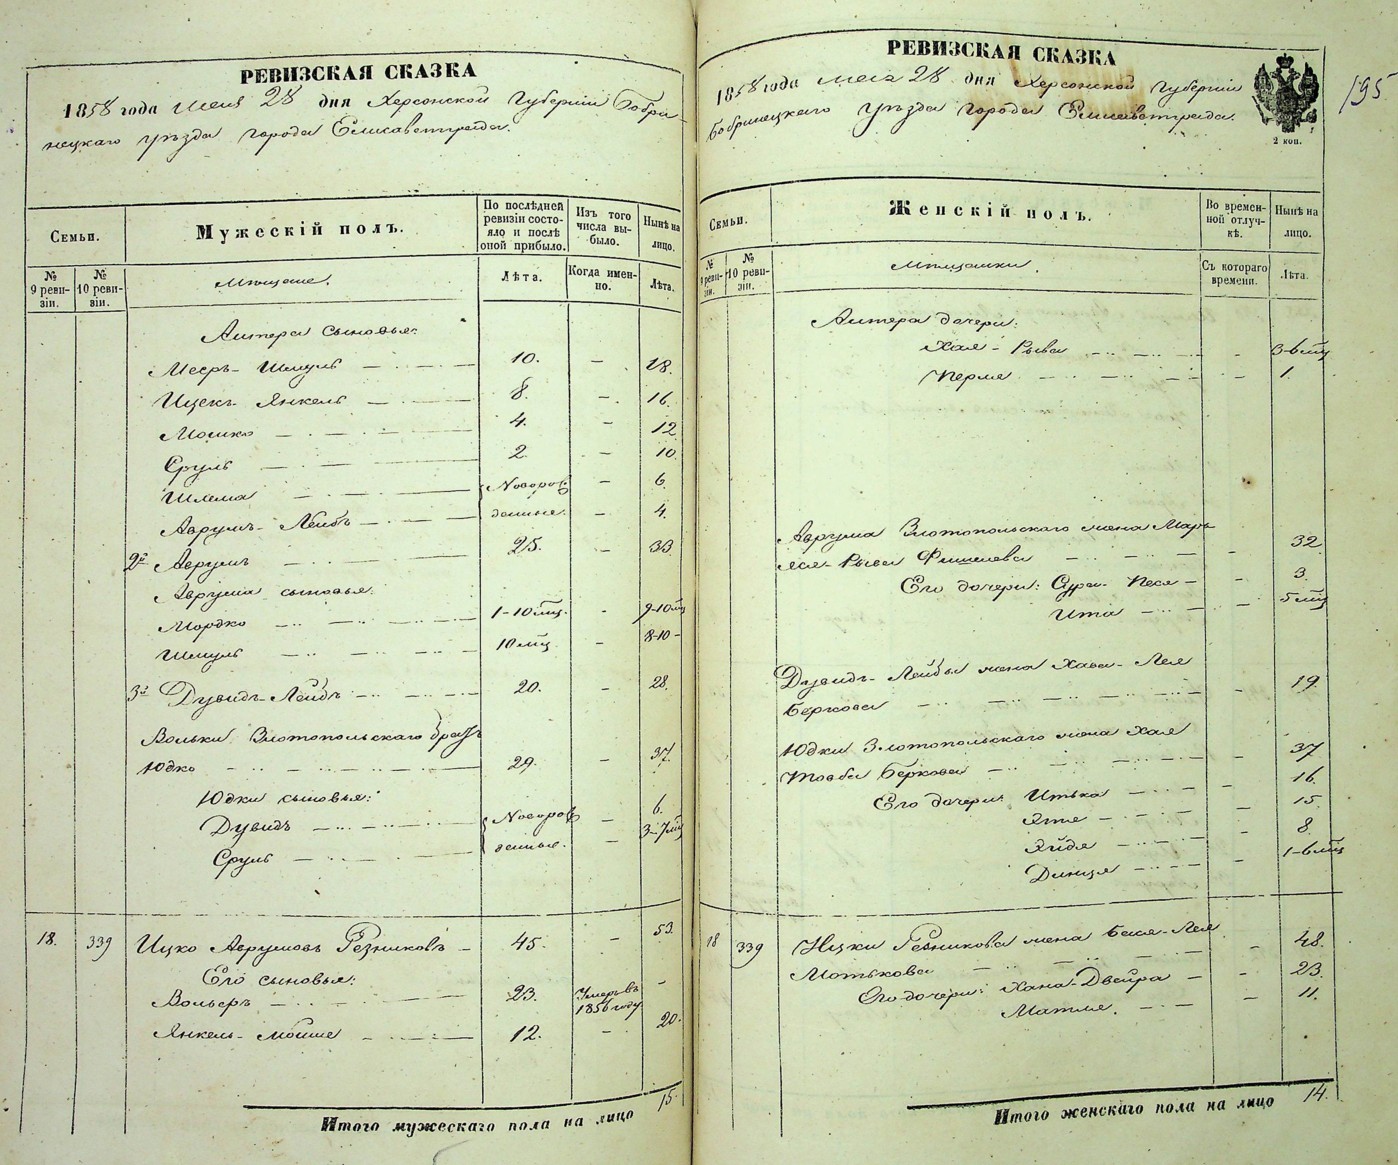 РЕВИЗСКАЯ СКАЗКА
1858 года Мая 28 дня Херсонской Губерніи Бобри-
нецкаго уѣзда города Елисаветграда.
Семьи.
Мужескій полъ.
По послѣдней ревизіи состояло и послѣ оной прибыло.
Изъ того числа выбыло.
Нынѣ на лицо.
№ 9 ревизіи.
№ 10 ревизіи.
Мѣщане.
Лѣта.
Когда именно.
Лѣта.
сыновья:
Шмуль 10. — 18.
Ицек- Янкель 8. — 16.
Мошко 4. — 12
Сруль 2. — 10
Шлема Новорож- — 6.
Аврумъ- Лейбъ денные. — 4.
2й Аврумъ 25. — 33
Аврума сыновья:
Мордко 1-10 мц. — 9-10 мц
Шмуль 10 мц. — 8-10 -
3й Дувидъ-Лейбъ 20. — 28.
Вольки Злотопольскаго братъ
Юдко 29. — 37.
Юдки сыновья:
Дувидъ Новорож- — 6.
Сруль денные. — 3-7 мц
18. 339 Ицко Аврумовъ Резниковъ 45. — 53.
Его сыновья:
Вольеръ 23. Умеръ въ 1856 году —
Янкель- Мойше 12. — 20.
Итого мужескаго пола на лицо 15.
РЕВИЗСКАЯ СКАЗКА
1858 года Мая 28 дня Херсонской Губерніи
Бобринецкаго уѣзда города Елисаветграда.
2 коп.
195
Семьи.
Женскій полъ.
Во временной отлучкѣ.
Нынѣ на лицо.
№ 9 ревизіи.
№ 10 ревизіи.
Мѣщанки.
Съ котораго времени.
Лѣта.
дочери:
Хая- Рыва — 3-6 мц
Перля — 1.
Аврума Злотопольскаго жена Марь-
яся- Рыва Фишелева — 32
Его дочери: Сура- Песя — 3.
Ита — 5 мц
Дувидъ- Лейбы жена Хава- Лея
Беркова — 19.
Юдки Злотопольскаго жена Хая
Товба Беркова — 37
Его дочери: Итька — 16.
15.
Хайдя — 8
Динця — 1-6 мц
18 339 Ицки Резникова жена Бася-Лея
Мотькова — 48.
Его дочери: Хана-Двейра — 23.
Матля. — 11.
Итого женскаго пола на лицо 14.